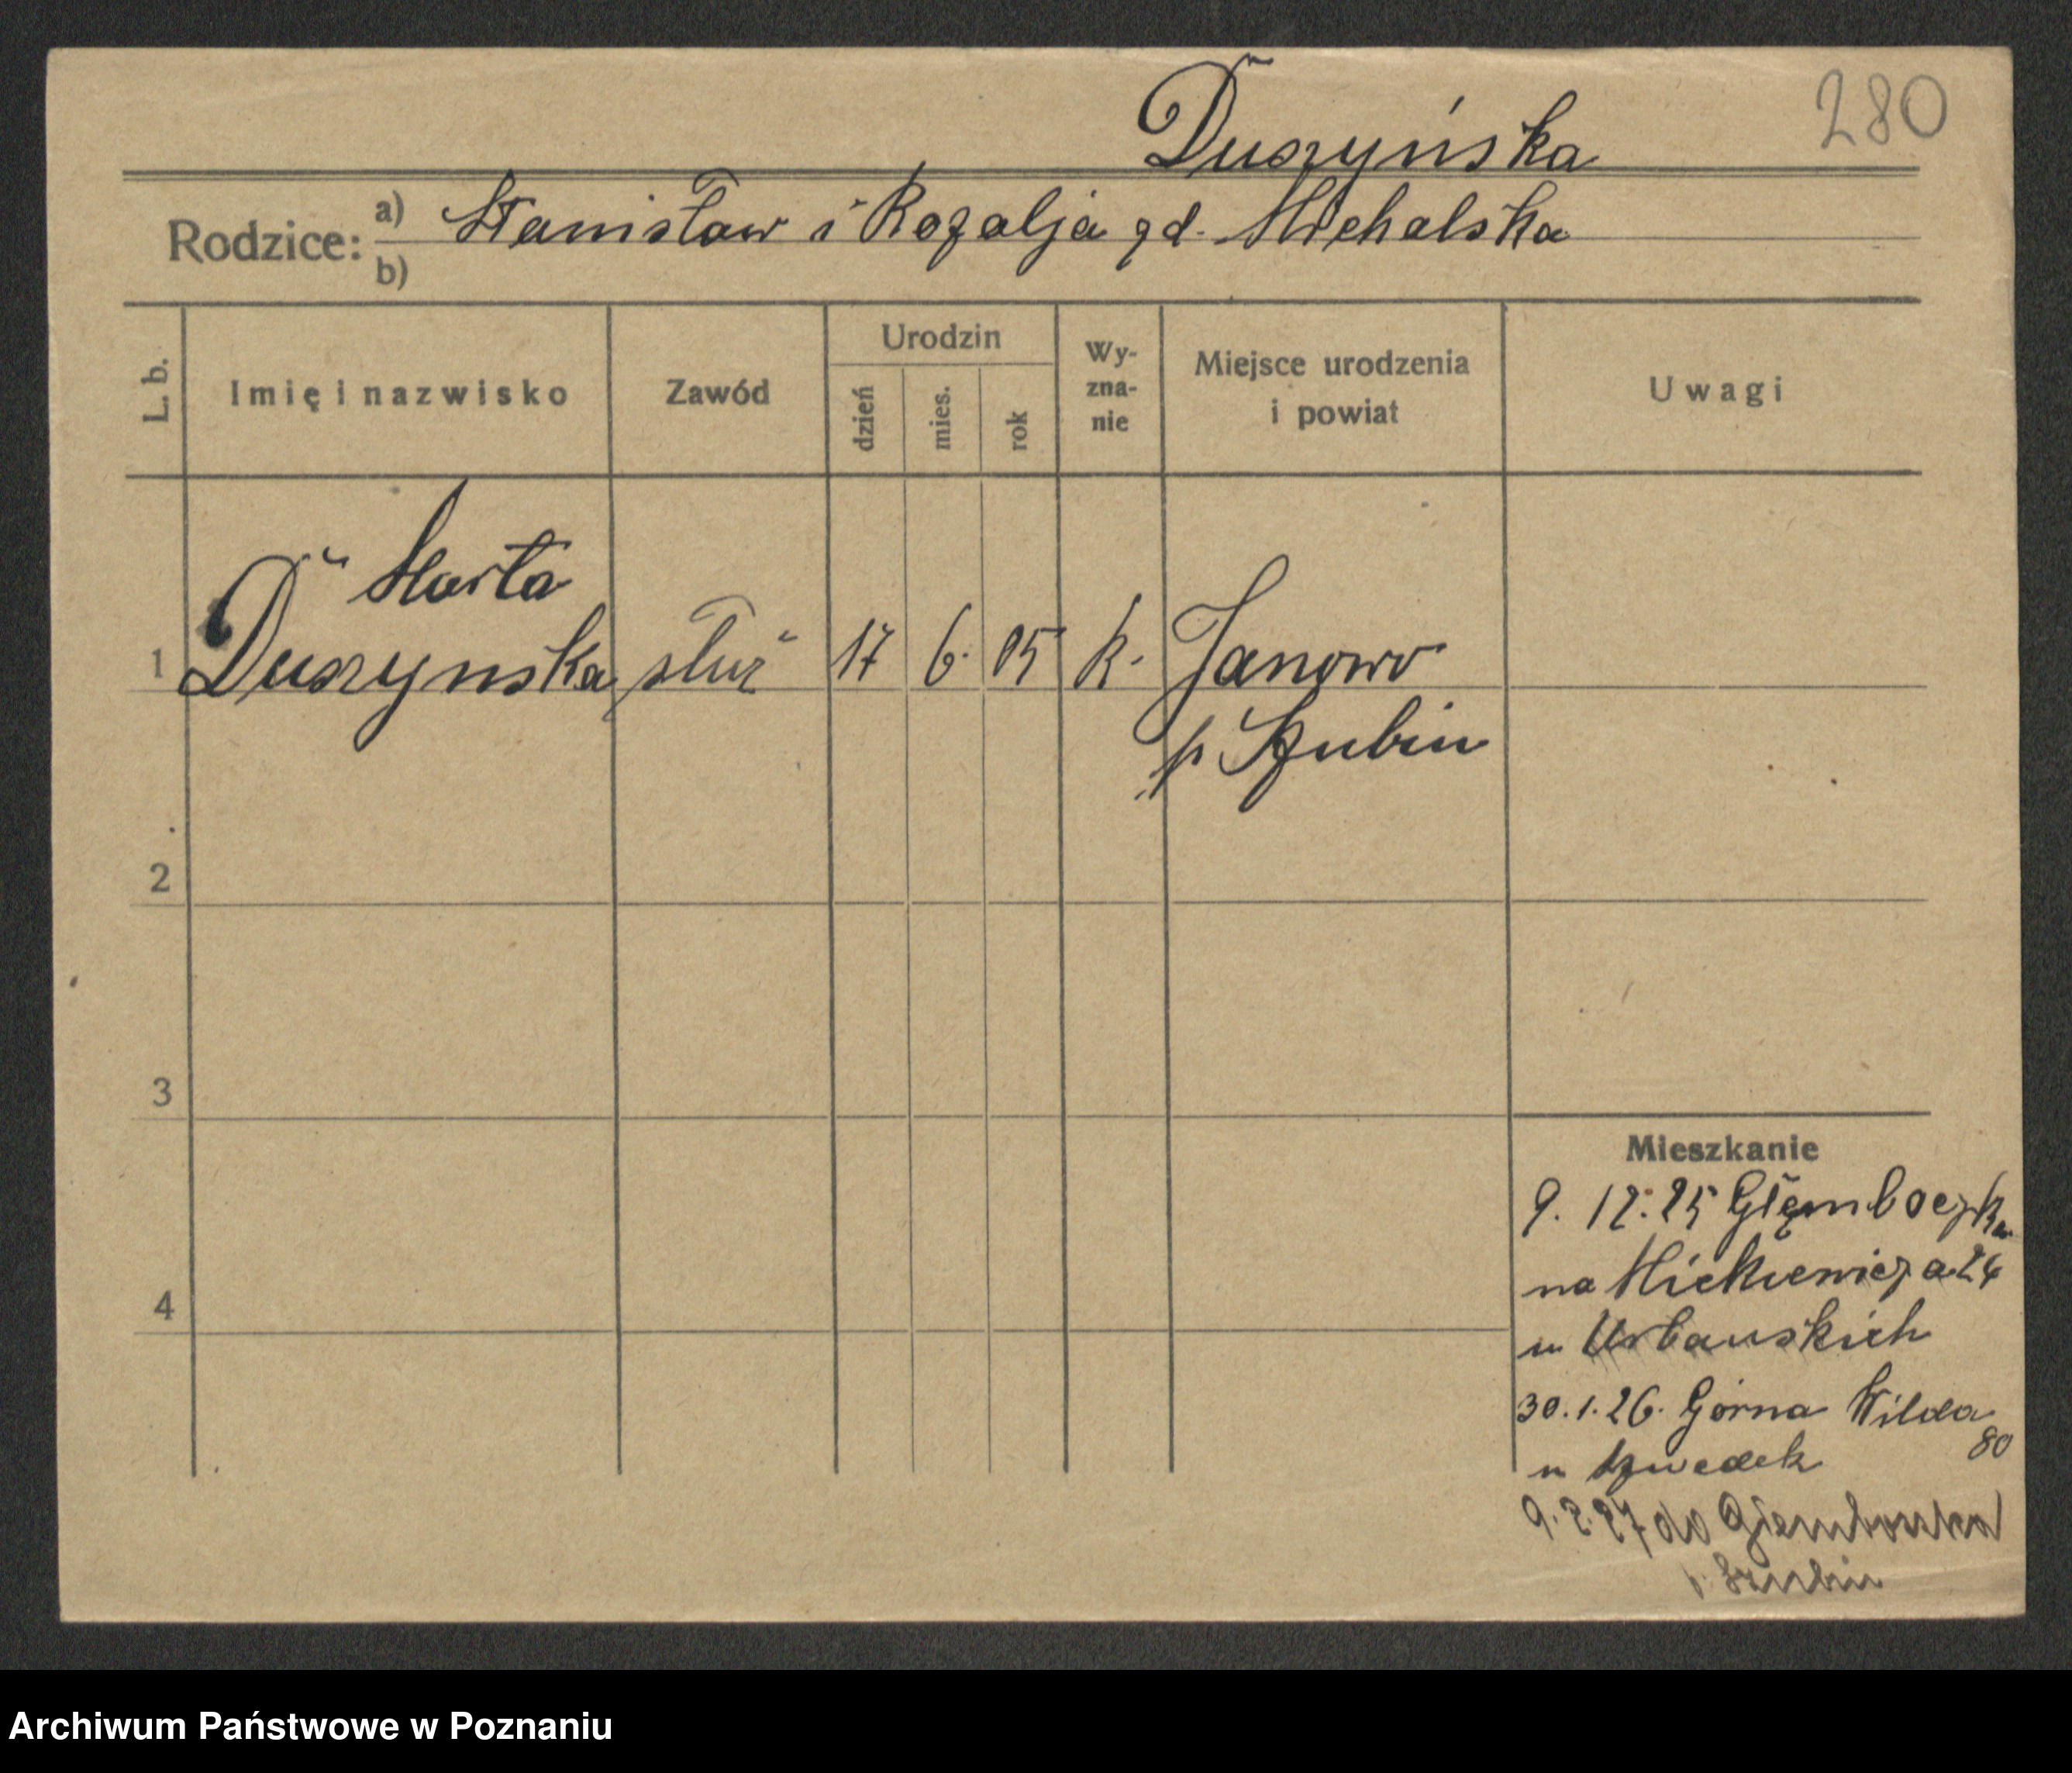 280
Duszyńska
Rodzice: a) Stanisław i Rozalja zd. Michalska
b)
L. b. Imię i nazwisko Zawód Urodzin dzień mies. rok Wy-zna-nie Miejsce urodzenia i powiat Uwagi
Marta
1 Duszynska służ 17 6. 05 k. Janowo
p Szubin
2
3
Mieszkanie
9. 12. 25 Głęmboczka
na Mickiewicza 24
4
u Urbanskich
30.1.26. Górna Wilda
80
u Szwedek
9.2.27 do Giemboczka
p. Szubin
Archiwum Państwowe w Poznaniu